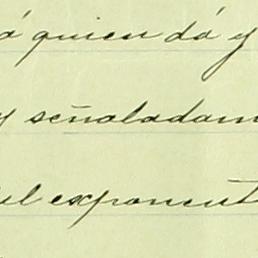 á quien dá y
y señaladam
del exponent